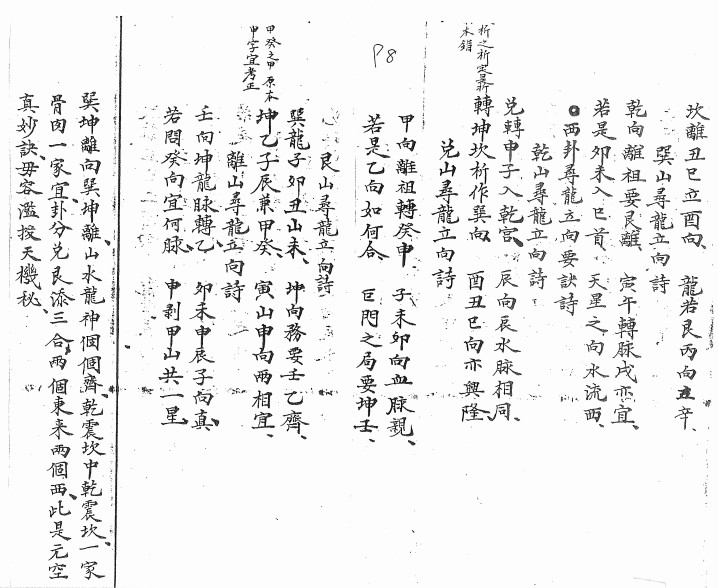 坎離丑巳立酉向、　龍若艮丙向立辛、
巽山尋龍立向詩
乾向離祖要艮離、　寅午轉脉戌亦宜、
若是卯未入巳首、　天星之向水流西、
西卦尋龍立向要訣詩
乾山尋龍立向詩
兌轉申子入乾宮、　辰向辰水脉相同、
轉坤坎析作巽向、　酉丑巳向亦興隆
析之析定是祈
未錯
兌山尋龍立向詩
P8
甲向離祖轉癸申　子未卯向血脉親、
若是乙向如何合　巨門之局要坤壬、
艮山尋龍立向詩
巽龍子卯丑山未、　坤向務要壬乙齊、
坤乙子辰兼甲癸、　寅山申向兩相宜、
甲癸之甲原本
申字宜考正
離山尋龍立向詩
壬向坤龍脉轉乙、　卯未申辰子向真、
若問癸向宜何脉、　申剥甲山共一星、
巽坤離向巽坤離、山水龍神個個齊、乾震坎中乾震坎、一家
骨肉一家宜、卦分兌艮添三合、兩個東来兩個西、此是元空
真妙訣、毋容濫授天機秘、